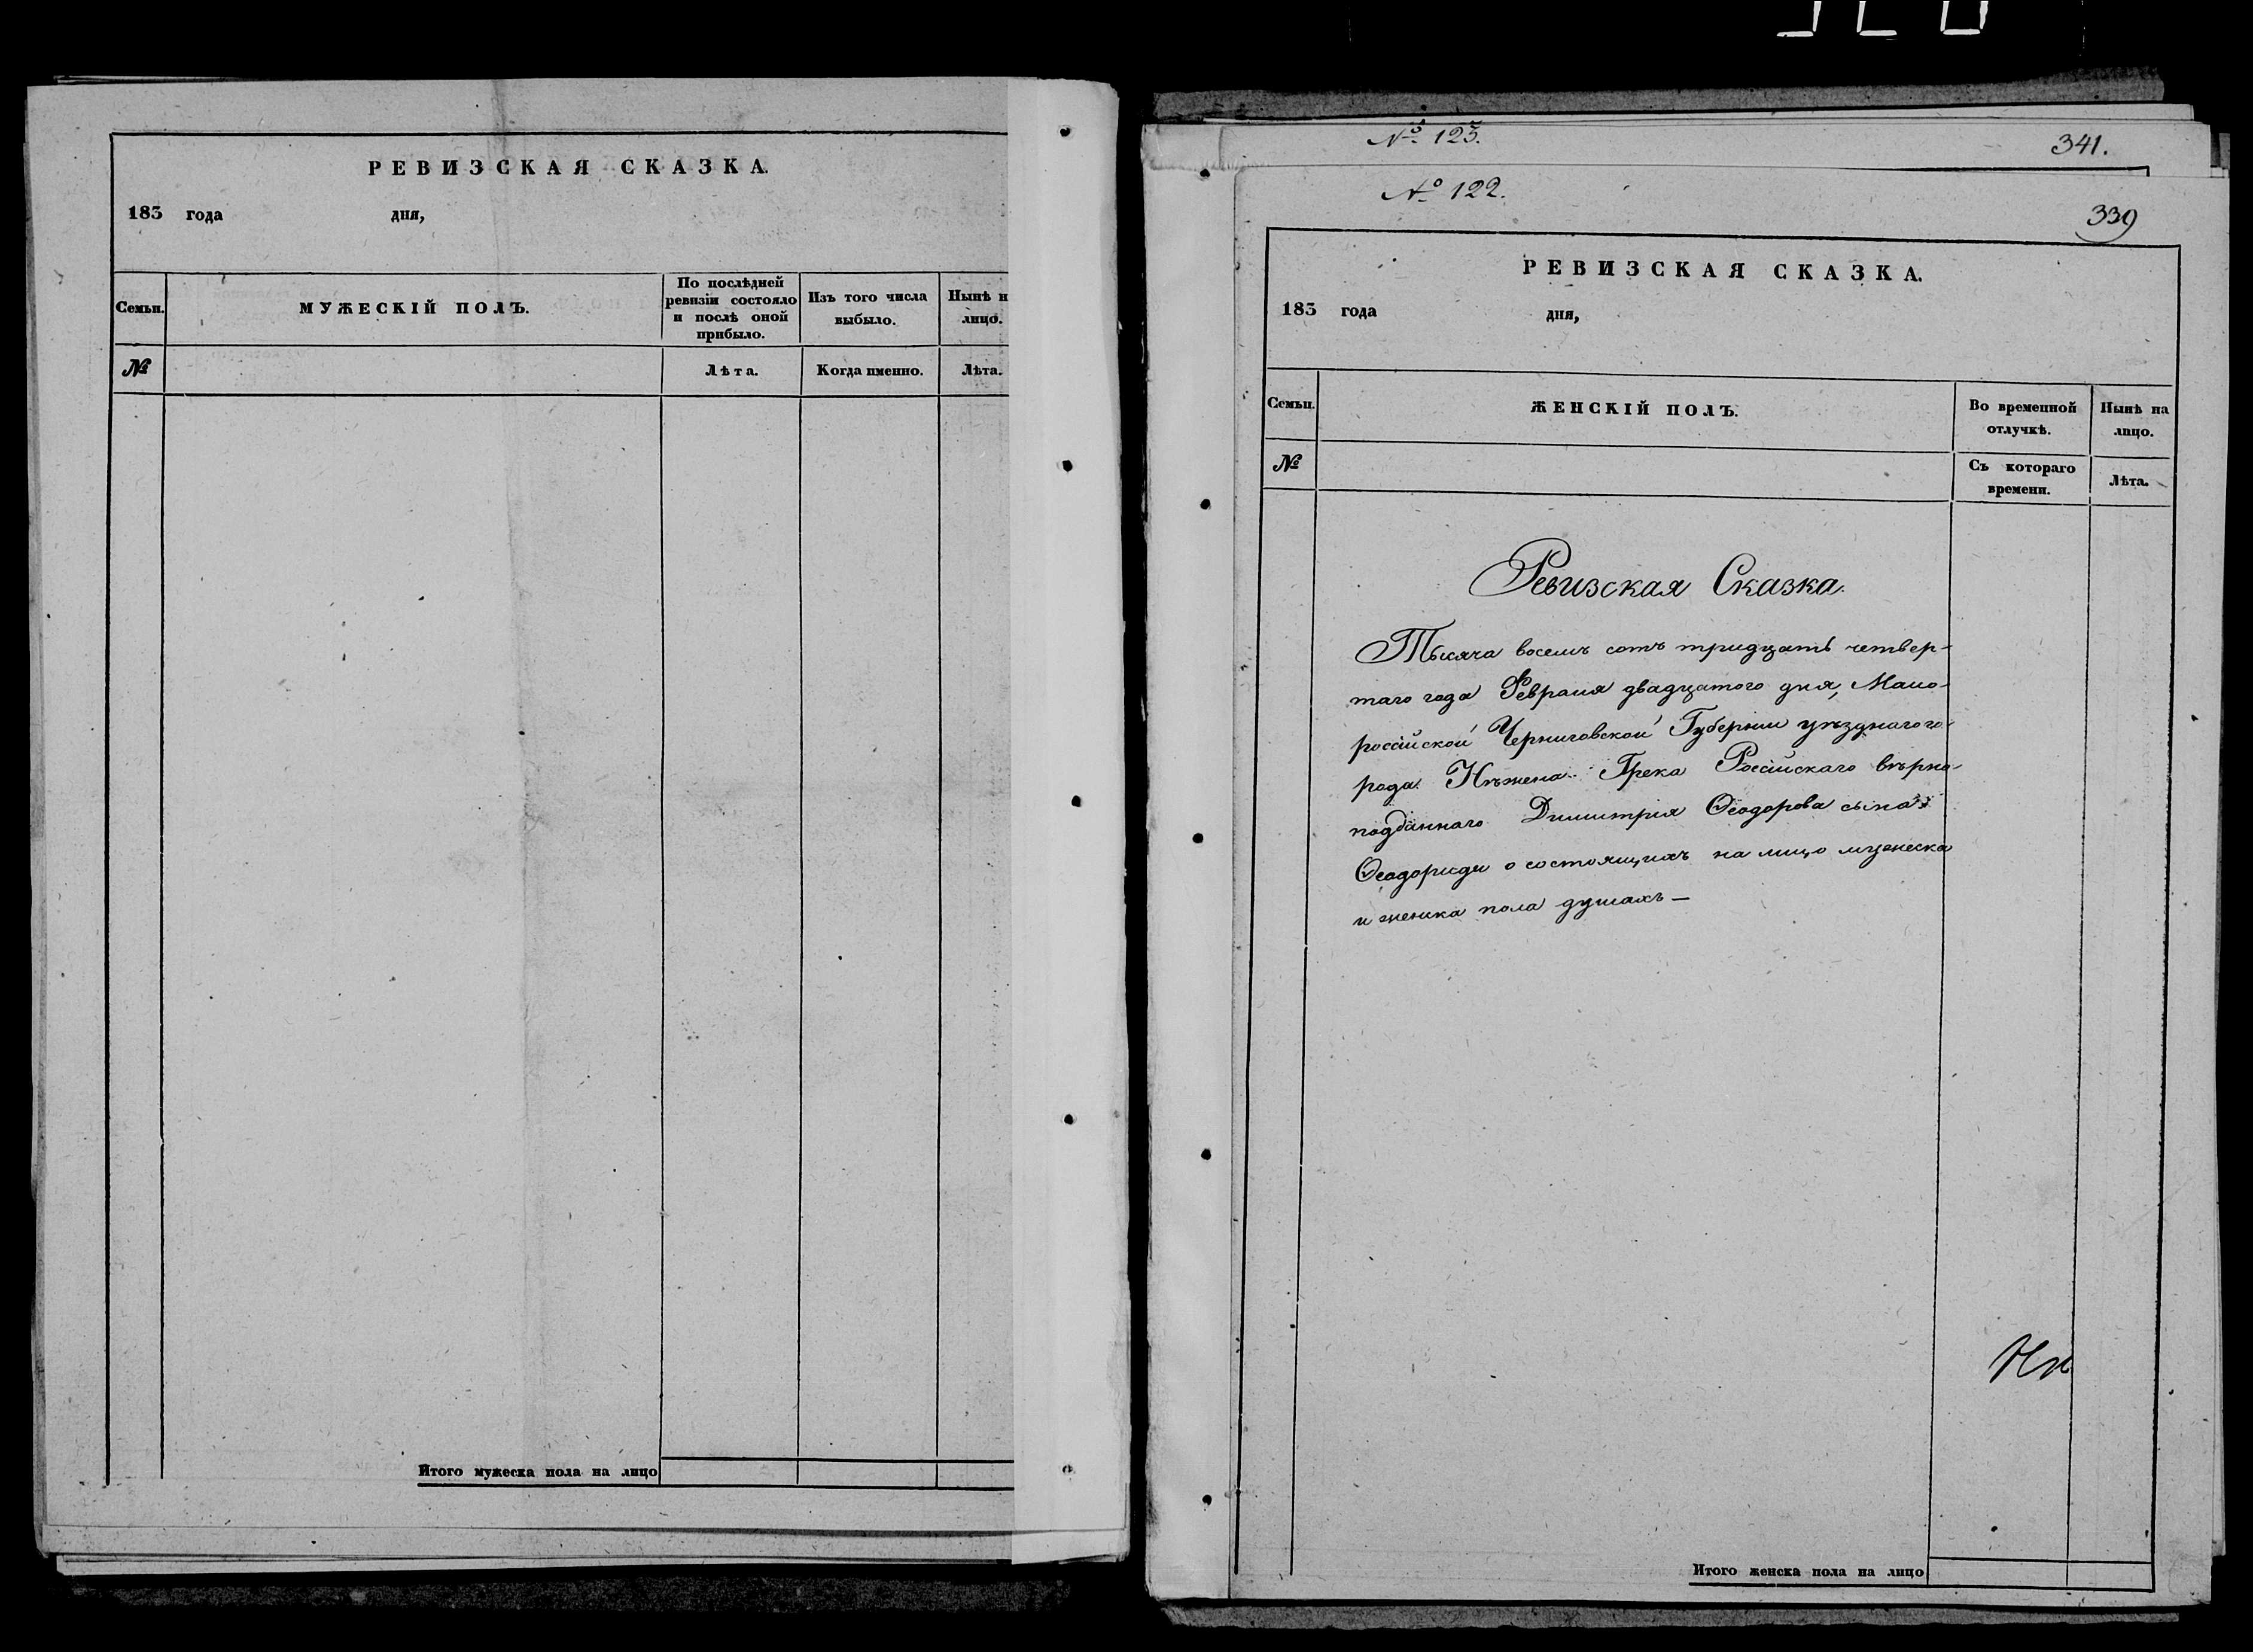 РЕВИЗСКАЯ СКАЗКА.
183 года дня,
Семьи. МУЖЕСКІЙ ПОЛЪ. По послѣдней ревизіи состояло и послѣ оной прибыло. Изъ того числа выбыло. Нынѣ н лицо.
№ Лѣта. Когда именно. Лѣта.
Итого мужеска пола на лицо
№ 123.
341.
№ 122.
339
РЕВИЗСКАЯ СКАЗКА.
183 года дня,
Семьи. ЖЕНСКІЙ ПОЛЪ. Во временной отлучкѣ. Нынѣ на лицо.
№ Съ котораго времени. Лѣта.
Ревизская Сказка.
Тысяча восемь сотъ тридцать четвер-
таго года Февраля двадцатого дня, Мало-
россійской Черниговской Губерніи уѣзднаго го-
рода Нѣжена Грека Россійскаго вѣрно-
подданнаго Димитрія Ѳеодорова сына
Ѳеодориди о состоящихъ на лицо мужеска
и женска пола душахъ —
Итого женска пола на лицо